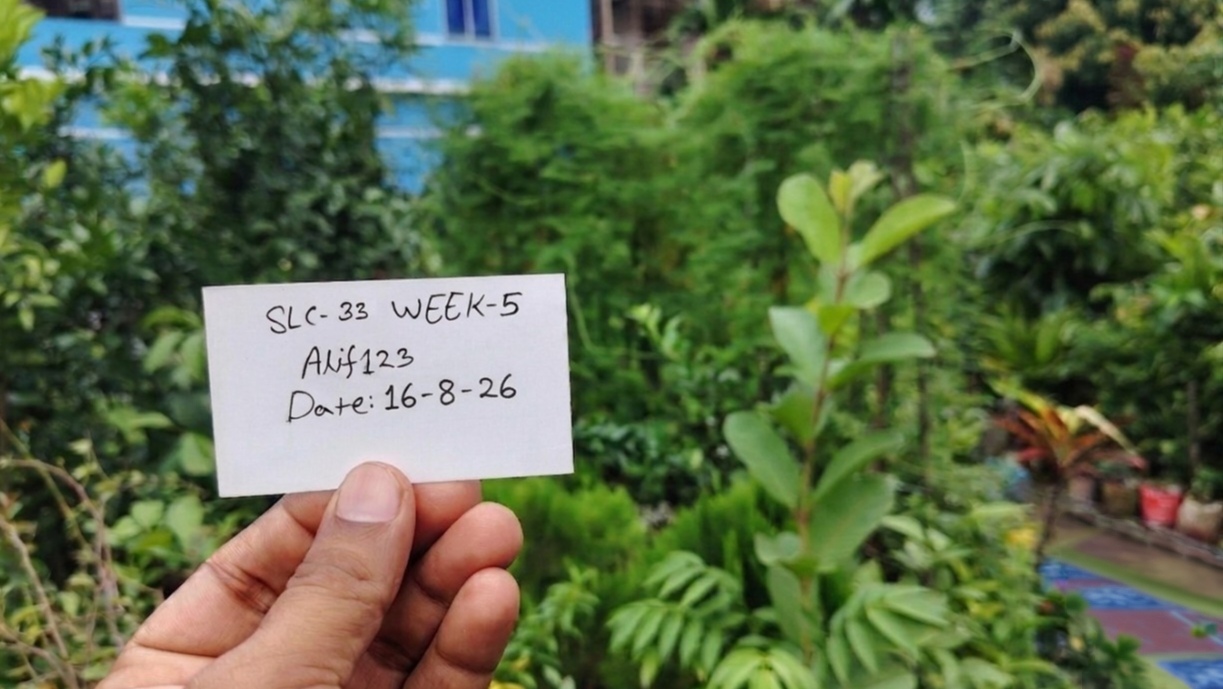 SLC-33 WEEK-5
Alif123
Date: 16-8-26